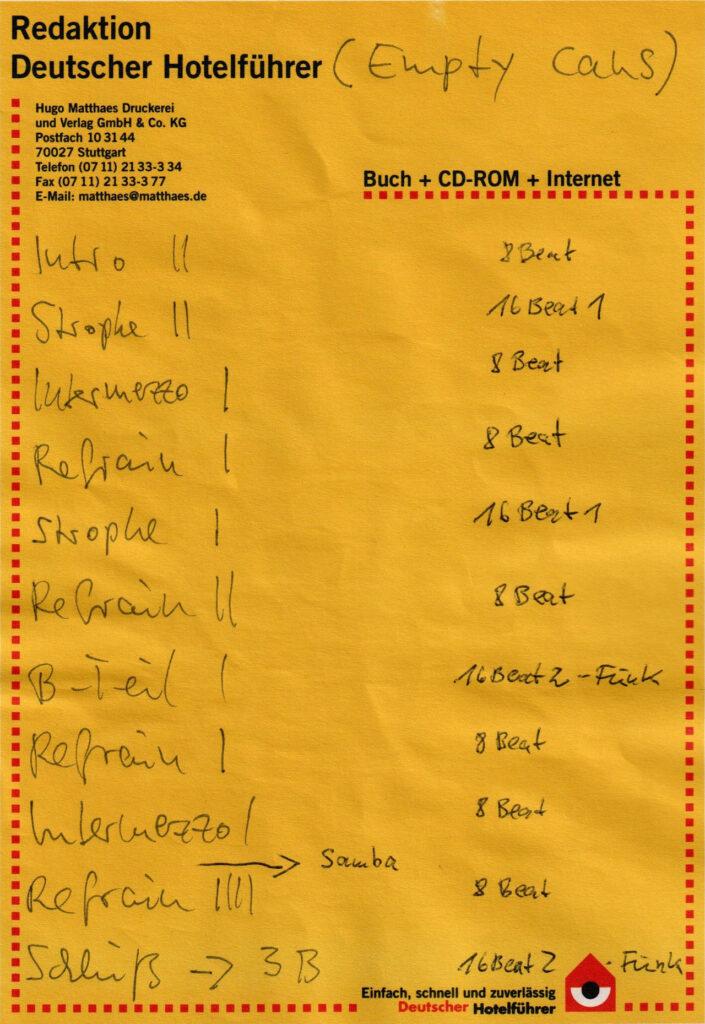 Redaktion
Deutscher Hotelführer (Empty Cans)
Hugo Matthaes Druckerei
und Verlag GmbH & Co. KG
Postfach 10 31 44
70027 Stuttgart
Telefon (07 11) 21 33-3 34
Fax (07 11) 21 33-3 77
E-Mail: matthaes@matthaes.de
Buch + CD-ROM + Internet
Intro || 8 Beat
Strophe || 16 Beat 1
Intermezzo | 8 Beat
Refrain | 8 Beat
Strophe | 16 Beat 1
Refrain || 8 Beat
B-Teil | 16 Beat 2 - Funk
Refrain | 8 Beat
Intermezzo | 8 Beat
→ Samba
Refrain |||| 8 Beat
Schluß → 3 B 16 Beat 2 - Funk
Einfach, schnell und zuverlässig
Deutscher Hotelführer